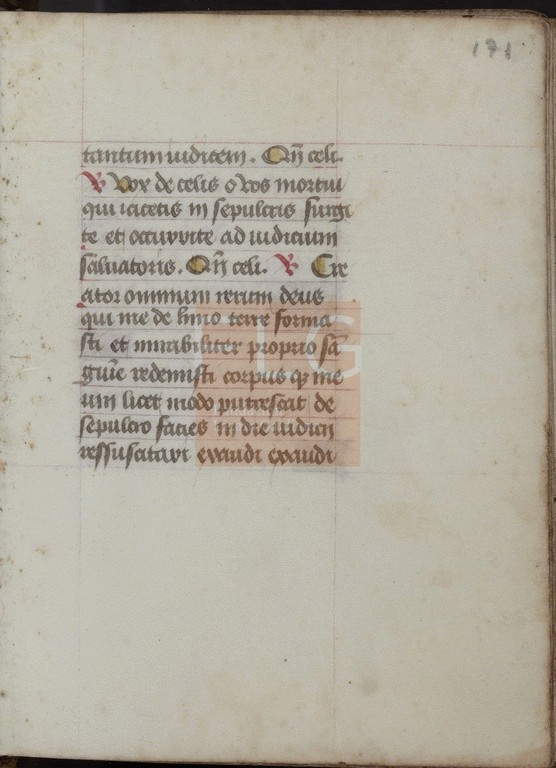 171
tantum iudicem. Qñ celi.
℣ Vox de celis o vos mortui
qui iacetis in sepulcris surgi
te et occurrite ad iudicium
saluatoris. Qñ celi. ℣ Cre
ator omnium rerum deus
qui me de limo terre forma
sti et mirabiliter proprio sā
guīe redemisti corpus qꝫ me
um licet modo putrescat de
sepulcro facies in die iudicii
ressuscitari exaudi exaudi